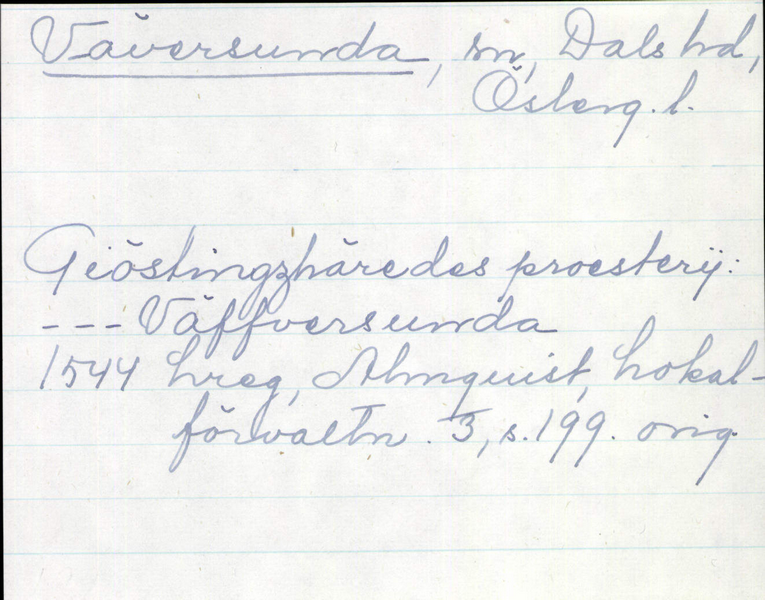 Väversunda, sn, Dals hd,
Österg. l.
Giöstingzhäredes proesterij:
--- Väffversunda
1544 hreg, Almquist, Lokal-
förvaltn. 3, s. 199. orig